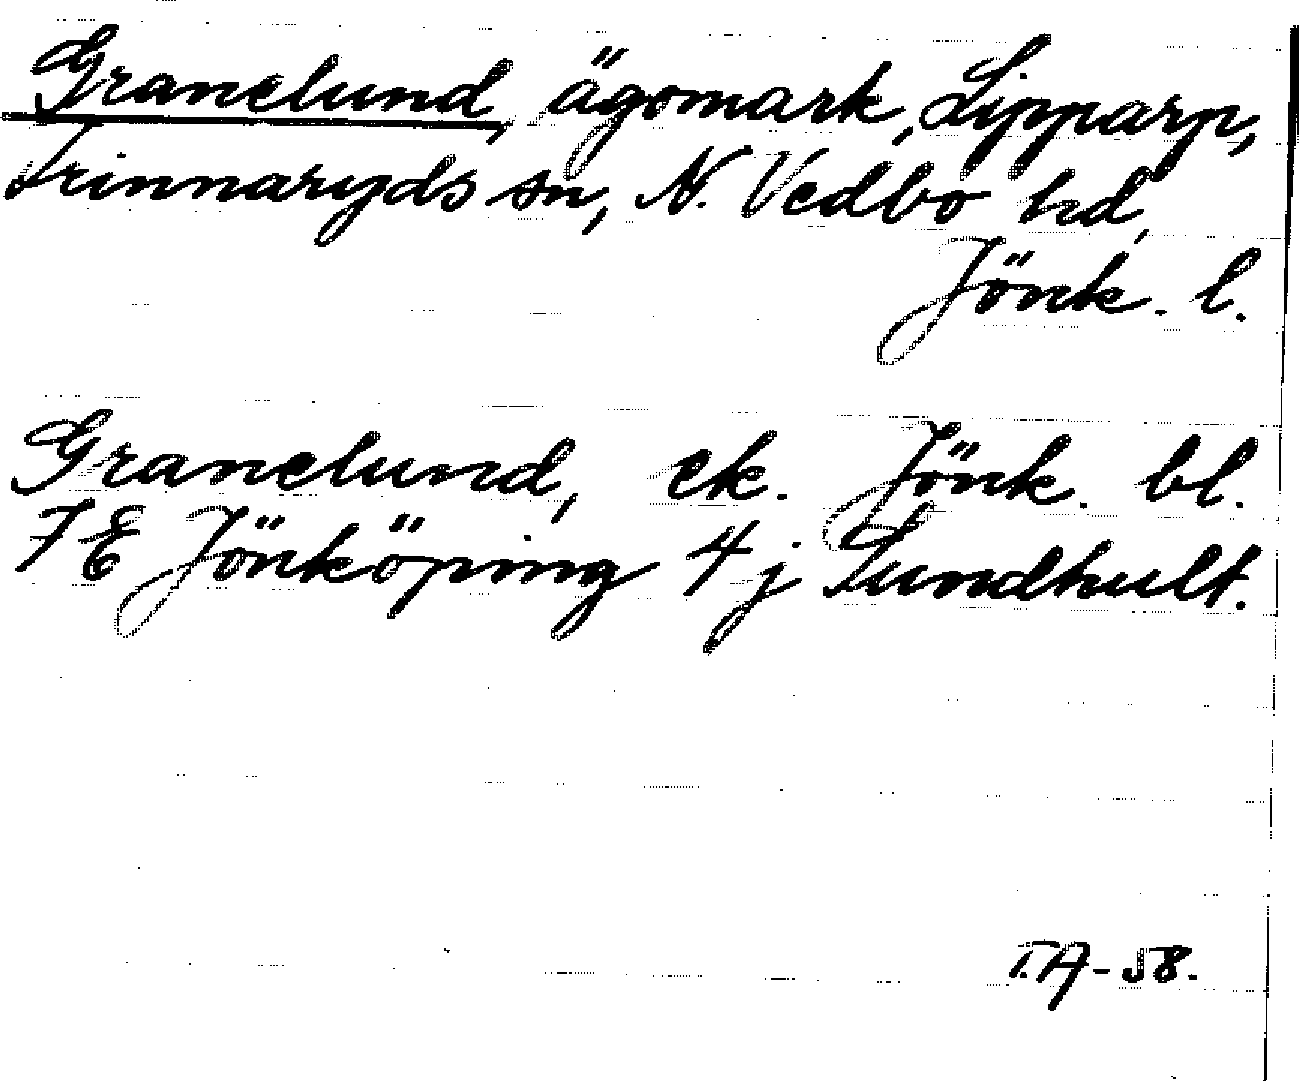 Granelund, ägomark, Lipparp,
Frinnaryds sn, N. Vedbo hd,
Jönk. l.
Granelund, ek. Jönk. bl.
7E Jönköping 4j Lundhult.
T.A-58.